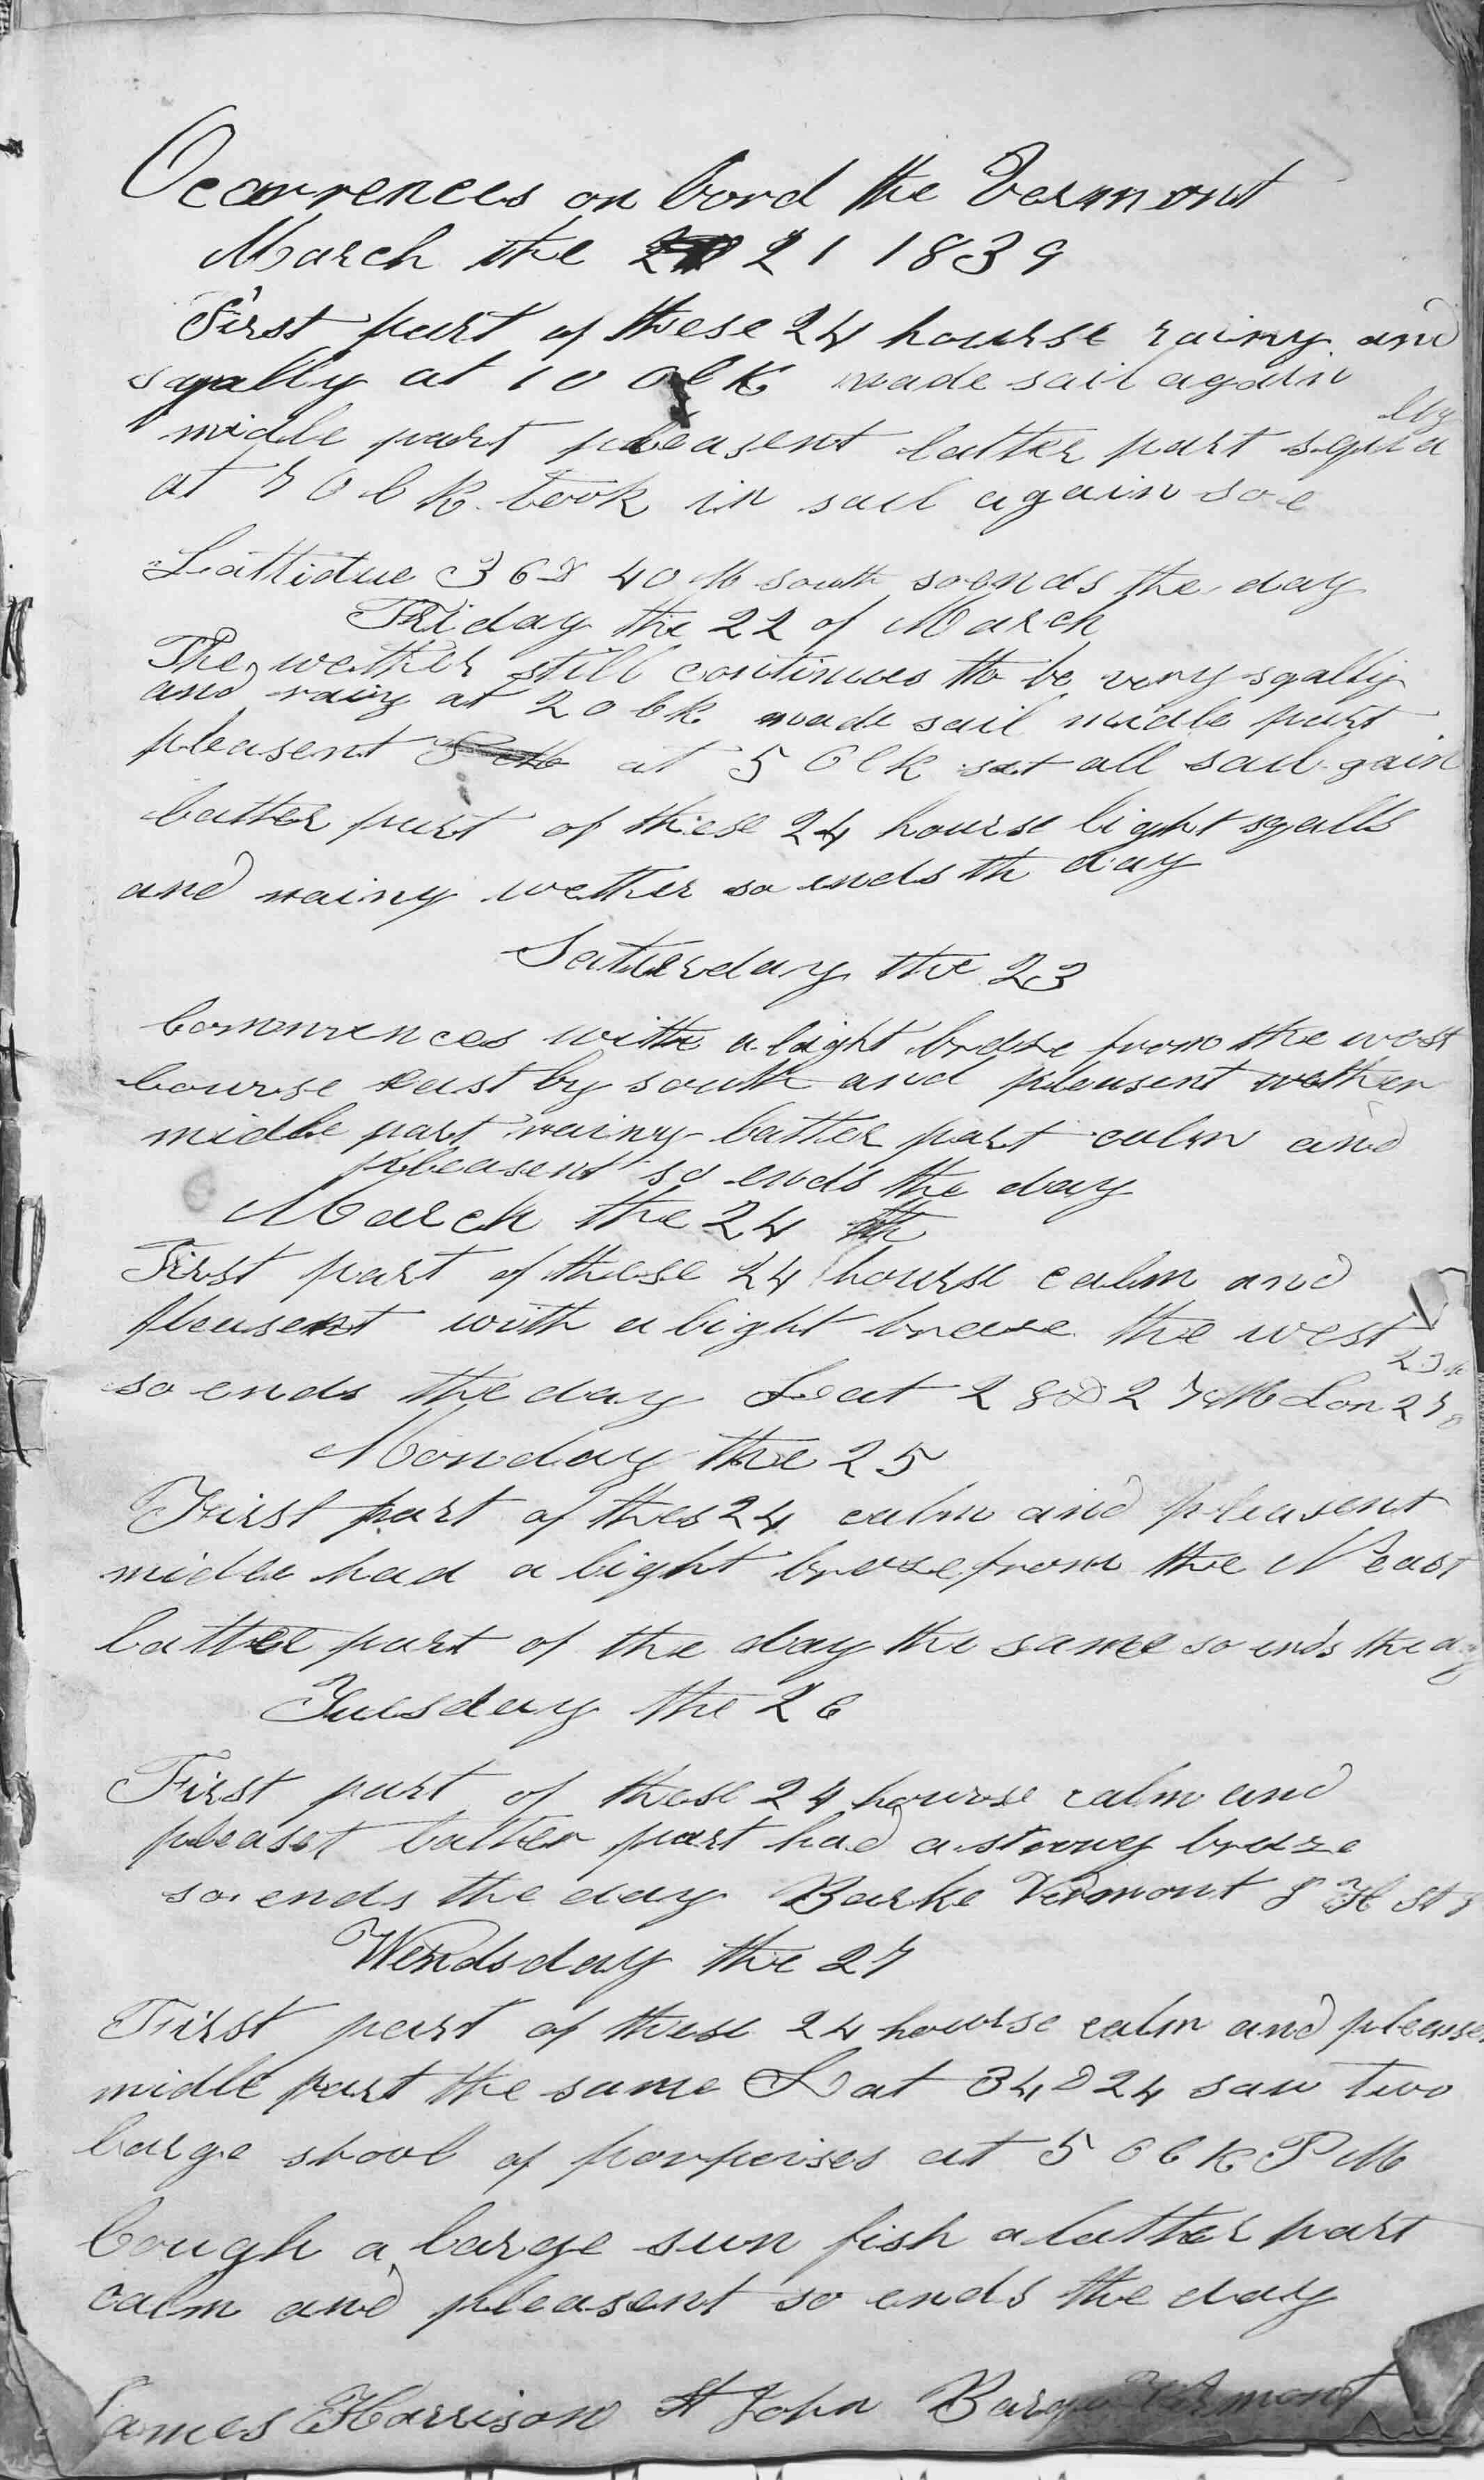 Ocarrences on bord the Vermont
March the 21 1839
First part of these 24 hourse rainy and
sqally at 10 Oclk made sail again
midle part pleasent latter part squally
at 7 Oclk took in sail again soe
Lattidue 36D 40M south soends the day
Friday the 22 of March
The wether still continues to be very sqally
and rainy at 2 oclk made sail midle part
pleasent at 5 Oclk set all sail gain
latter part of these 24 hourse light sqalls
and rainy wether so ends th day
Saturday the 23
Commences with a light breze from the west
Course east by south and pleasent wether
midle part rainy latter part calm and
pleasent so ends the day
March the 24 th
First part of these 24 hourse calm and
pleasent with a light breaze the west
so ends the day Lat 28D 27M Lon 27
Monday the 25
First part of thes 24 calm and pleasent
midle had a light breze from the N East
latter part of the day the same so ends the day
Tuesday the 26
First part of these 24 hourse calm and
pleasst latter part had a strong breze
so ends the day Barke Vermont J H St J
Wendsday the 27
First part of these 24 hourse calm and please
midle part the same Lat 34D 24 saw two
large shool of porpoises at 5 Oclk PM
Cough a large sun fish a latter part
calm and pleasent so ends the day
James Harrison St John Barque Vermont